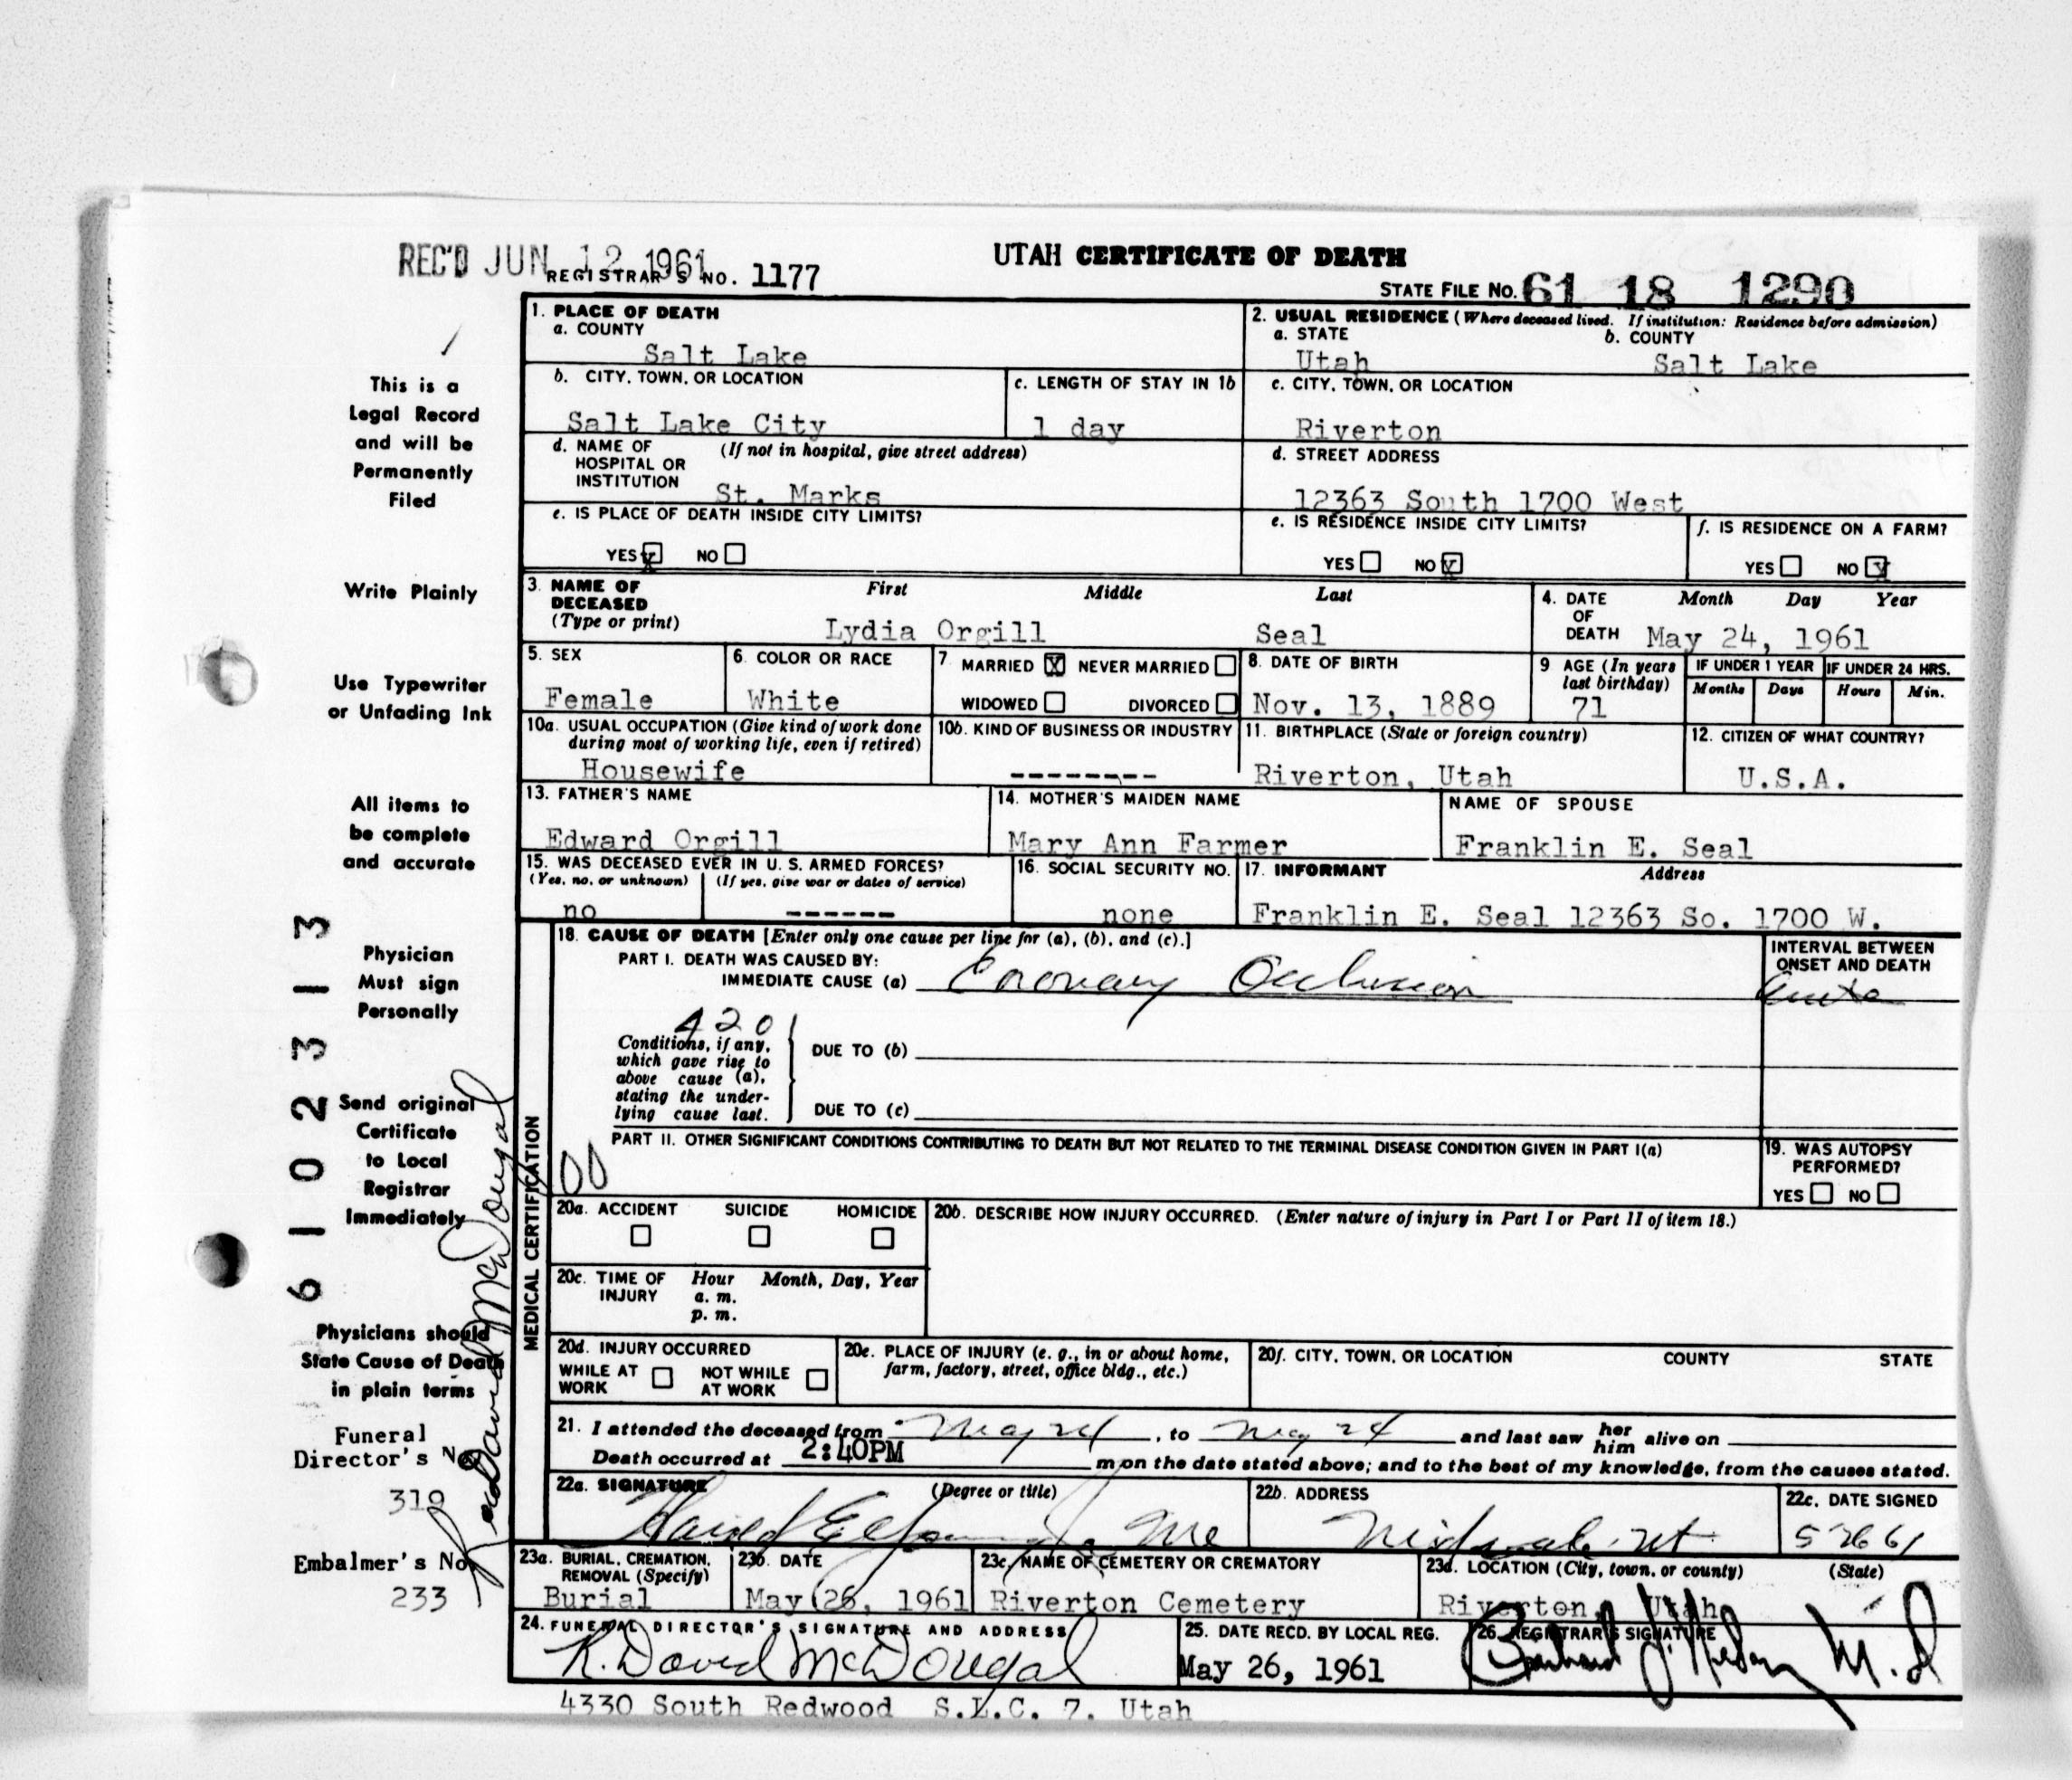 REC'D JUN 12 1961
REGISTRAR'S NO. 1177
UTAH CERTIFICATE OF DEATH
STATE FILE NO. 61 18 1290
This is a
Legal Record
and will be
Permanently
Filed
Write Plainly
Use Typewriter
or Unfading Ink
All items to
be complete
and accurate
Physician
Must sign
Personally
Send original
Certificate
to Local
Registrar
Immediately
Physicians should
State Cause of Death
in plain terms
Funeral
Director's No
319
Embalmer's No
233
61023113
R. David McDougal
1. PLACE OF DEATH
a. COUNTY
Salt Lake
2. USUAL RESIDENCE (Where deceased lived. If institution: Residence before admission)
a. STATE b. COUNTY
Utah Salt Lake
b. CITY, TOWN, OR LOCATION
Salt Lake City
c. LENGTH OF STAY IN 1b
1 day
c. CITY, TOWN, OR LOCATION
Riverton
d. NAME OF (If not in hospital, give street address)
HOSPITAL OR
INSTITUTION
St. Marks
d. STREET ADDRESS
12363 South 1700 West
e. IS PLACE OF DEATH INSIDE CITY LIMITS?
YES X NO
e. IS RESIDENCE INSIDE CITY LIMITS?
YES NO X
f. IS RESIDENCE ON A FARM?
YES NO X
3. NAME OF First Middle Last
DECEASED
(Type or print)
Lydia Orgill Seal
4. DATE Month Day Year
OF
DEATH May 24, 1961
5. SEX
Female
6. COLOR OR RACE
White
7. MARRIED X NEVER MARRIED
WIDOWED DIVORCED
8. DATE OF BIRTH
Nov. 13, 1889
9 AGE (In years
last birthday)
71
IF UNDER 1 YEAR IF UNDER 24 HRS.
Months Days Hours Min.
10a. USUAL OCCUPATION (Give kind of work done
during most of working life, even if retired)
Housewife
10b. KIND OF BUSINESS OR INDUSTRY
--------
11. BIRTHPLACE (State or foreign country)
Riverton, Utah
12. CITIZEN OF WHAT COUNTRY?
U.S.A.
13. FATHER'S NAME
Edward Orgill
14. MOTHER'S MAIDEN NAME
Mary Ann Farmer
NAME OF SPOUSE
Franklin E. Seal
15. WAS DECEASED EVER IN U. S. ARMED FORCES?
(Yes, no, or unknown) (If yes, give war or dates of service)
no ------
16. SOCIAL SECURITY NO.
none
17. INFORMANT Address
Franklin E. Seal 12363 So. 1700 W.
MEDICAL CERTIFICATION
18. CAUSE OF DEATH [Enter only one cause per line for (a), (b), and (c).]
PART I. DEATH WAS CAUSED BY:
IMMEDIATE CAUSE (a) Coronary Occlusion
INTERVAL BETWEEN
ONSET AND DEATH
acute
420
Conditions, if any,
which gave rise to
above cause (a),
stating the under-
lying cause last.
DUE TO (b)
DUE TO (c)
PART II. OTHER SIGNIFICANT CONDITIONS CONTRIBUTING TO DEATH BUT NOT RELATED TO THE TERMINAL DISEASE CONDITION GIVEN IN PART I(a)
00
19. WAS AUTOPSY
PERFORMED?
YES NO
20a. ACCIDENT SUICIDE HOMICIDE
20b. DESCRIBE HOW INJURY OCCURRED. (Enter nature of injury in Part I or Part II of item 18.)
20c. TIME OF Hour Month, Day, Year
INJURY a. m.
p. m.
20d. INJURY OCCURRED
WHILE AT NOT WHILE
WORK AT WORK
20e. PLACE OF INJURY (e. g., in or about home,
farm, factory, street, office bldg., etc.)
20f. CITY, TOWN, OR LOCATION COUNTY STATE
21. I attended the deceased from May 24, to May 24 and last saw her him alive on
Death occurred at 2:40PM m on the date stated above; and to the best of my knowledge, from the causes stated.
22a. SIGNATURE (Degree or title)
22b. ADDRESS
Midvale Ut
22c. DATE SIGNED
5 26 61
23a. BURIAL, CREMATION,
REMOVAL (Specify)
Burial
23b. DATE
May 26, 1961
23c. NAME OF CEMETERY OR CREMATORY
Riverton Cemetery
23d. LOCATION (City, town, or county) (State)
Riverton, Utah
24. FUNERAL DIRECTOR'S SIGNATURE AND ADDRESS
R. David McDougal
25. DATE RECD. BY LOCAL REG.
May 26, 1961
26. REGISTRAR'S SIGNATURE
M.D
4330 South Redwood S.L.C. 7, Utah